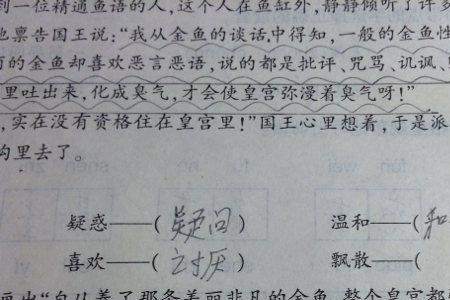 到一位精通鱼语的人,这个人在鱼缸外,静静倾听了许多
也禀告国王说:“我从金鱼的谈话中得知,一般的金鱼性
的金鱼却喜欢恶言恶语,说的都是批评、咒骂、讥讽、
里吐出来,化成臭气,才会使皇宫弥漫着臭气呀!”
,实在没有资格住在皇宫里!”国王心里想着,于是派
沟里去了。
疑惑——(疑问) 温和——(和
喜欢——(讨厌) 飘散——(
画出“自从养了那条美丽非凡的金鱼,整个皇宫都